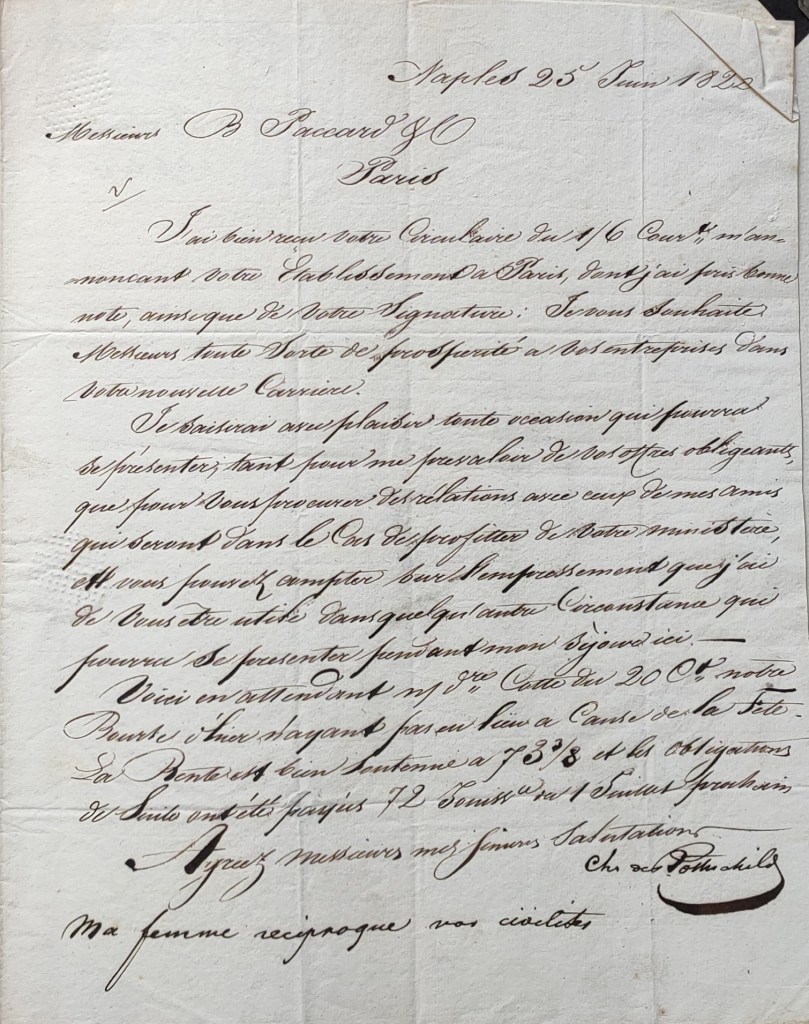 Naples 25 Juin 1822
Messieurs B Paccard & C
Paris
J'ai bien reçu votre Circulaire du 1/6 Cour.t, m'an-
nonçant votre Etablissement a Paris, dont j'ai pris bonne
note, ainsique de votre Signature: Je vous souhaite
Messieurs toute sorte de prosperité a vos entreprises dans
votre nouvelle Carriere.
Je saisirai avec plaisir toute occasion qui pourra
se présenter, tant pour me prevaloir de vos offres obligeants,
que pour vous procurer des rélations avec ceux de mes amis
qui seront dans le Cas de profitter de votre ministère,
et vous pouvez compter sur l'empressement que j'ai
de vous etre utile dans quelqu'autre Circonstance qui
pourra se presenter pendant mon séjour ici. —
Voici en attendant n/ d.re Cotte du 20 C.t, notre
Bourse d'hier n'ayant pas eu lieu a Cause de la Fete-
La Rente est bien soutenue a 73 3/8 et les obligations
de Sicile ont été payées 72 Jouiss.ce du 1 Juillet prochain
Agreez messieurs mes sinceres Salutations
Ch de Rothschild
Ma femme reciproque vos civilités